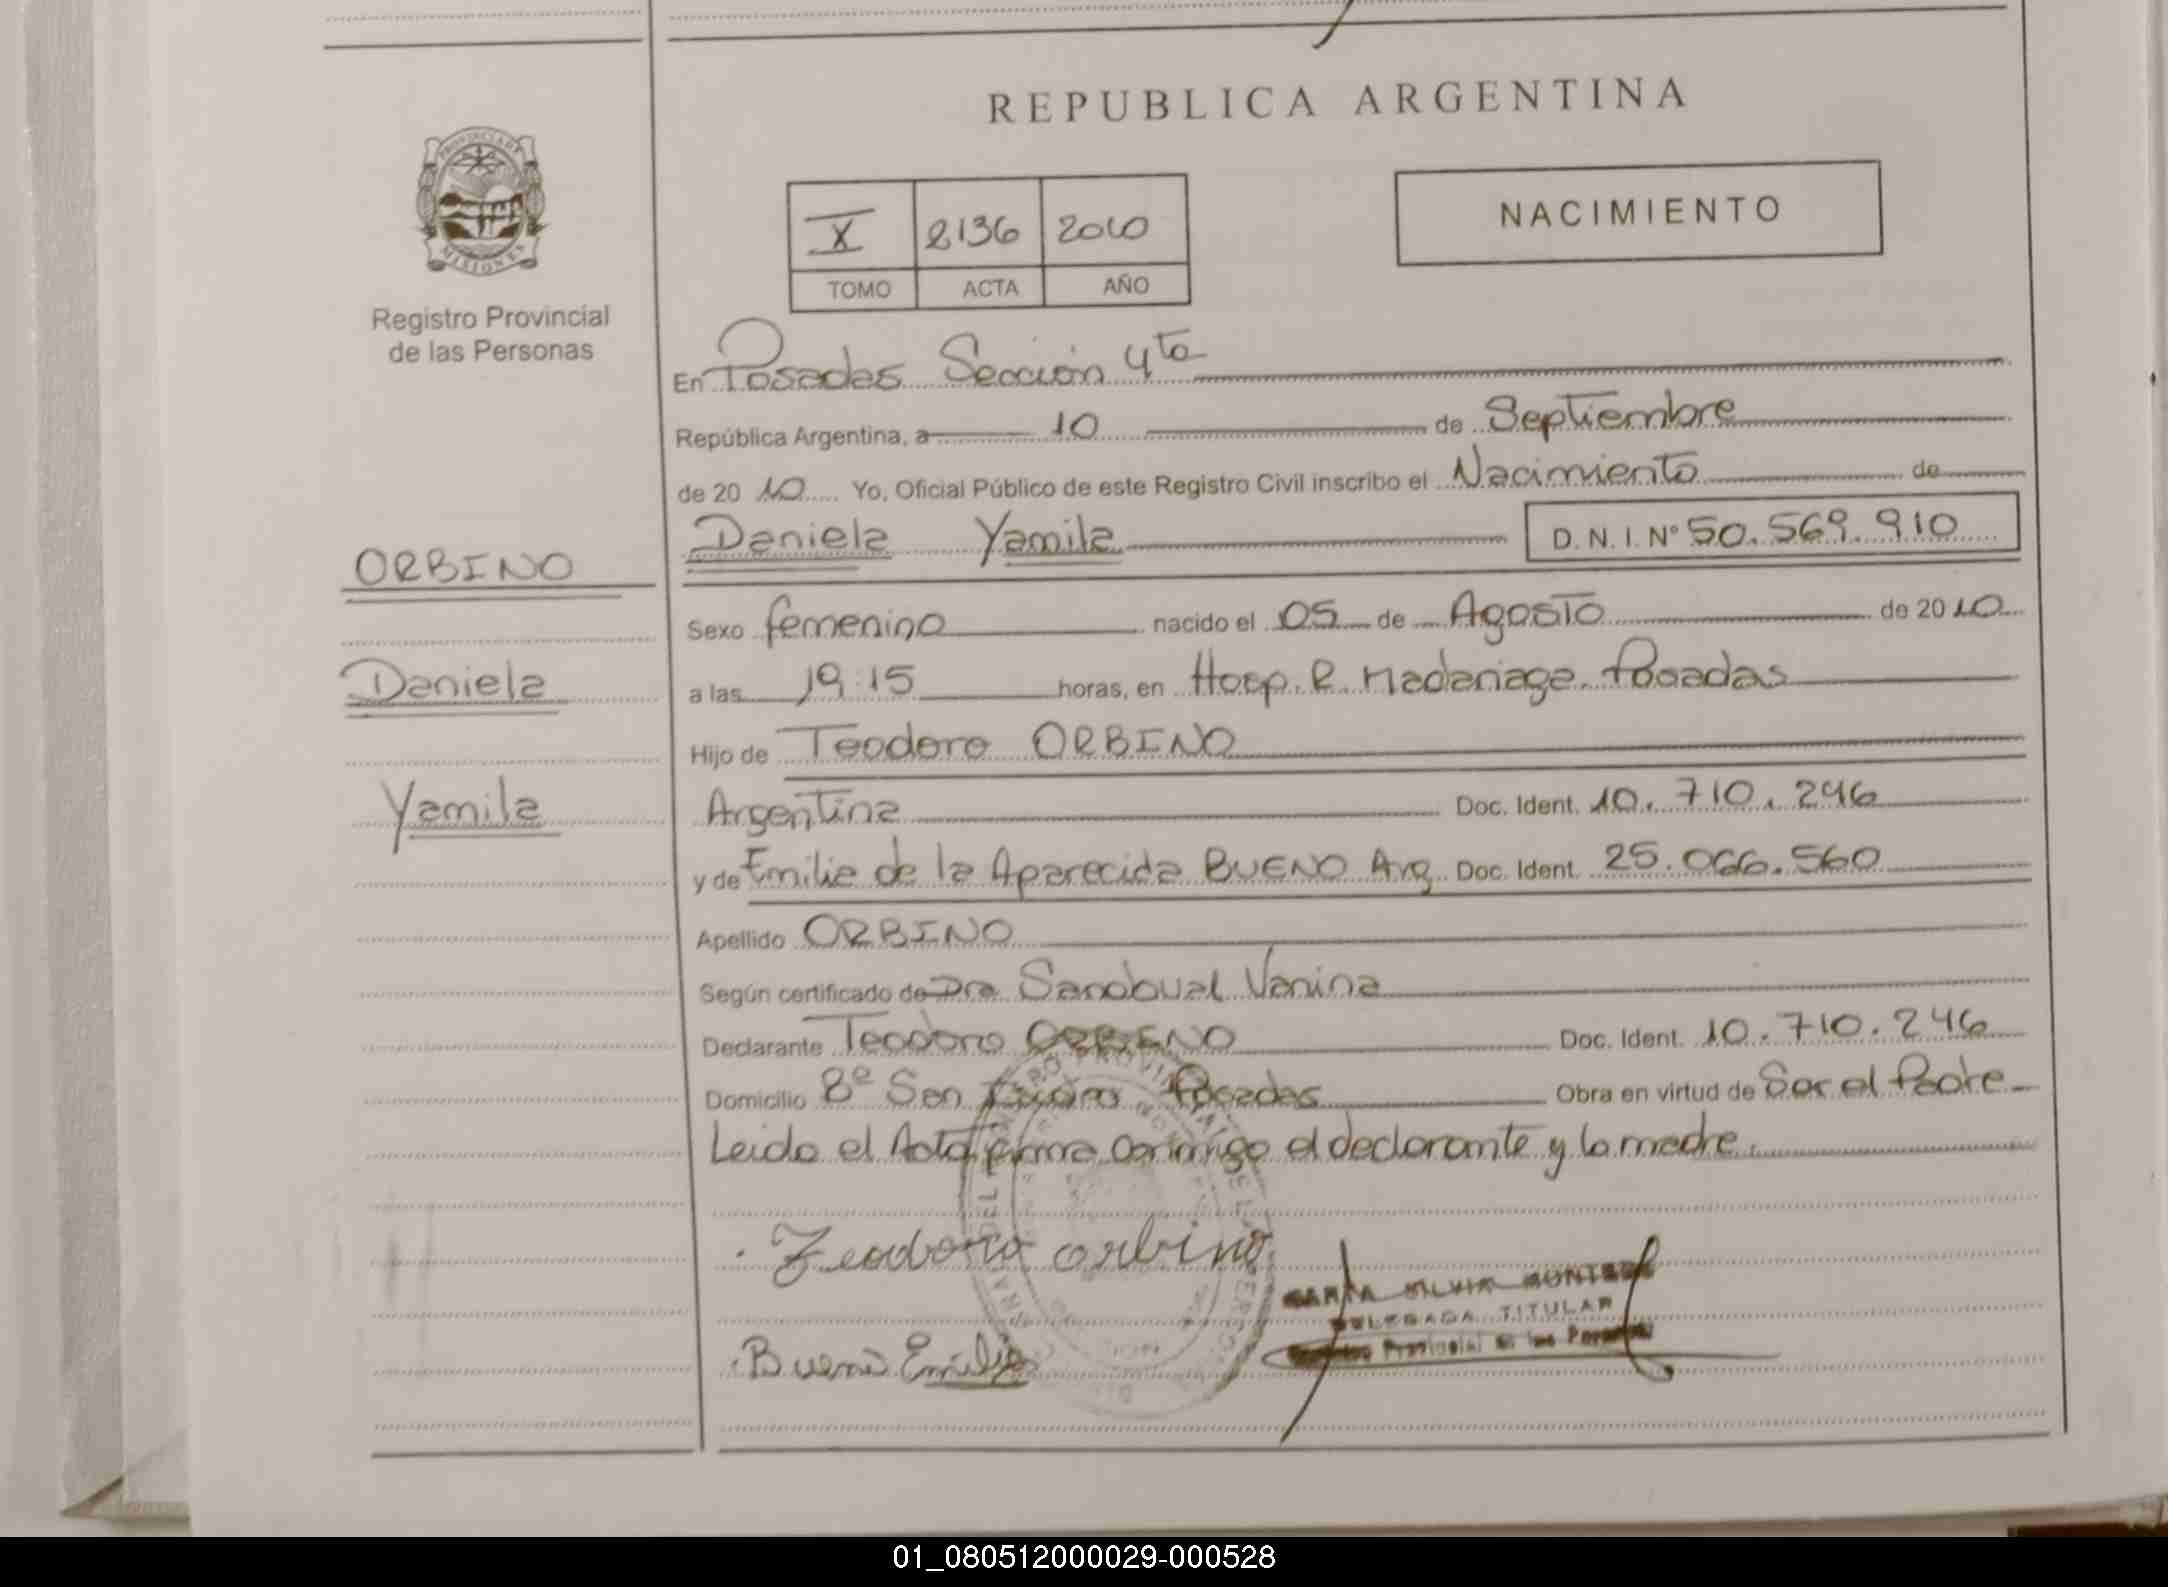 REPUBLICA ARGENTINA
PROVINCIA DE
MISIONES
Registro Provincial
de las Personas
X 2136 2010
TOMO ACTA AÑO
NACIMIENTO
En Posadas Sección 4ta
República Argentina, a 10 de Septiembre
de 20 10 Yo, Oficial Público de este Registro Civil inscribo el Nacimiento de
Daniela Yamila D. N. I. Nº 50.569.910
ORBINO
Sexo femenino nacido el 05 de Agosto de 20 10
Daniela
a las 19:15 horas, en Hosp. R. Madariaga. Posadas
Hijo de Teodoro ORBINO
Yamila
Argentina Doc. Ident. 10.710.246
y de Emilia de la Aparecida BUENO Arg. Doc. Ident. 25.066.560
Apellido ORBINO
Según certificado de Dra Sandoval Vanina
Declarante Teodoro ORBINO Doc. Ident. 10.710.246
Domicilio Bº San Isidro Posadas Obra en virtud de Ser el Padre
Leido el Acta firma conmigo el declarante y la madre.
Teodoro orbino
SILVIA
DELEGADA TITULAR
Provincial de las Personas
Bueno Emilia
01_080512000029-000528